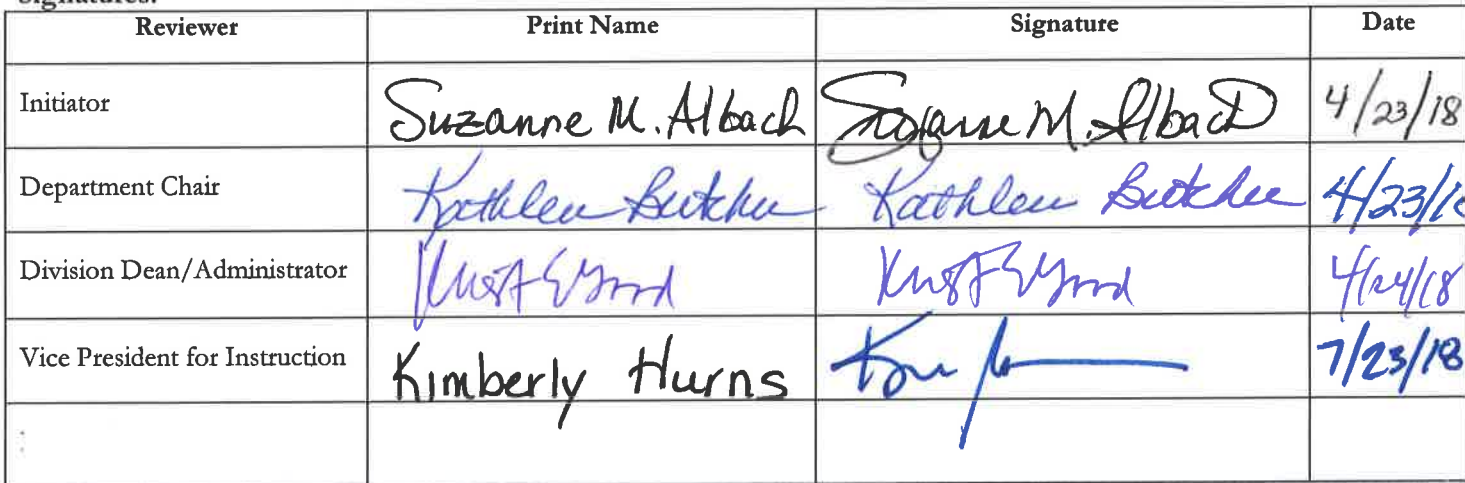 Signatures:
Reviewer Print Name Signature Date
Initiator Suzanne M. Albach Suzanne M. Albach 4/23/18
Department Chair Kathleen Butcher Kathleen Butcher 4/23/18
Division Dean/Administrator 4/24/18
Vice President for Instruction Kimberly Hurns 7/23/18